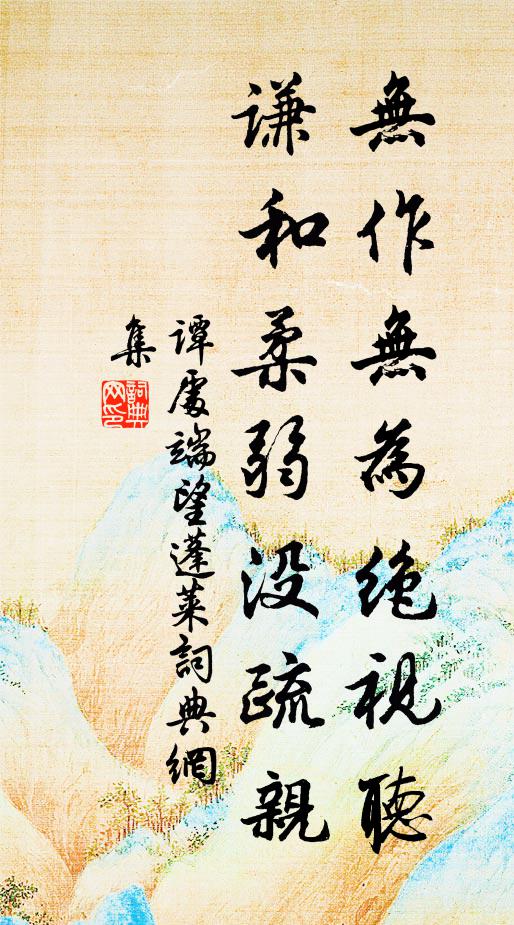 無作無為絶視聽
謙和柔弱没疏親
譚處端望蓬萊詞典網
集
詞典網印